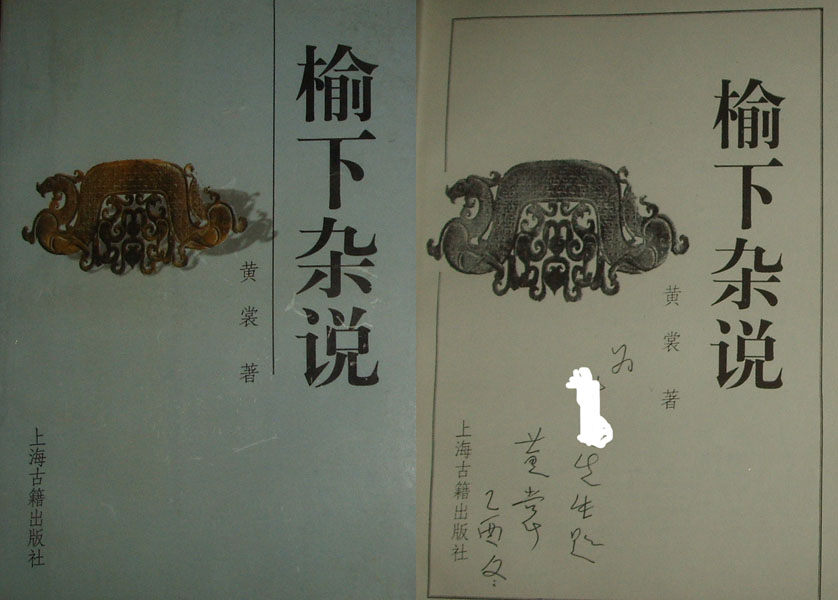 榆下杂说
黄裳 著
上海古籍出版社
榆下杂说
黄裳 著
为
先生题
黄裳
乙酉冬
上海古籍出版社